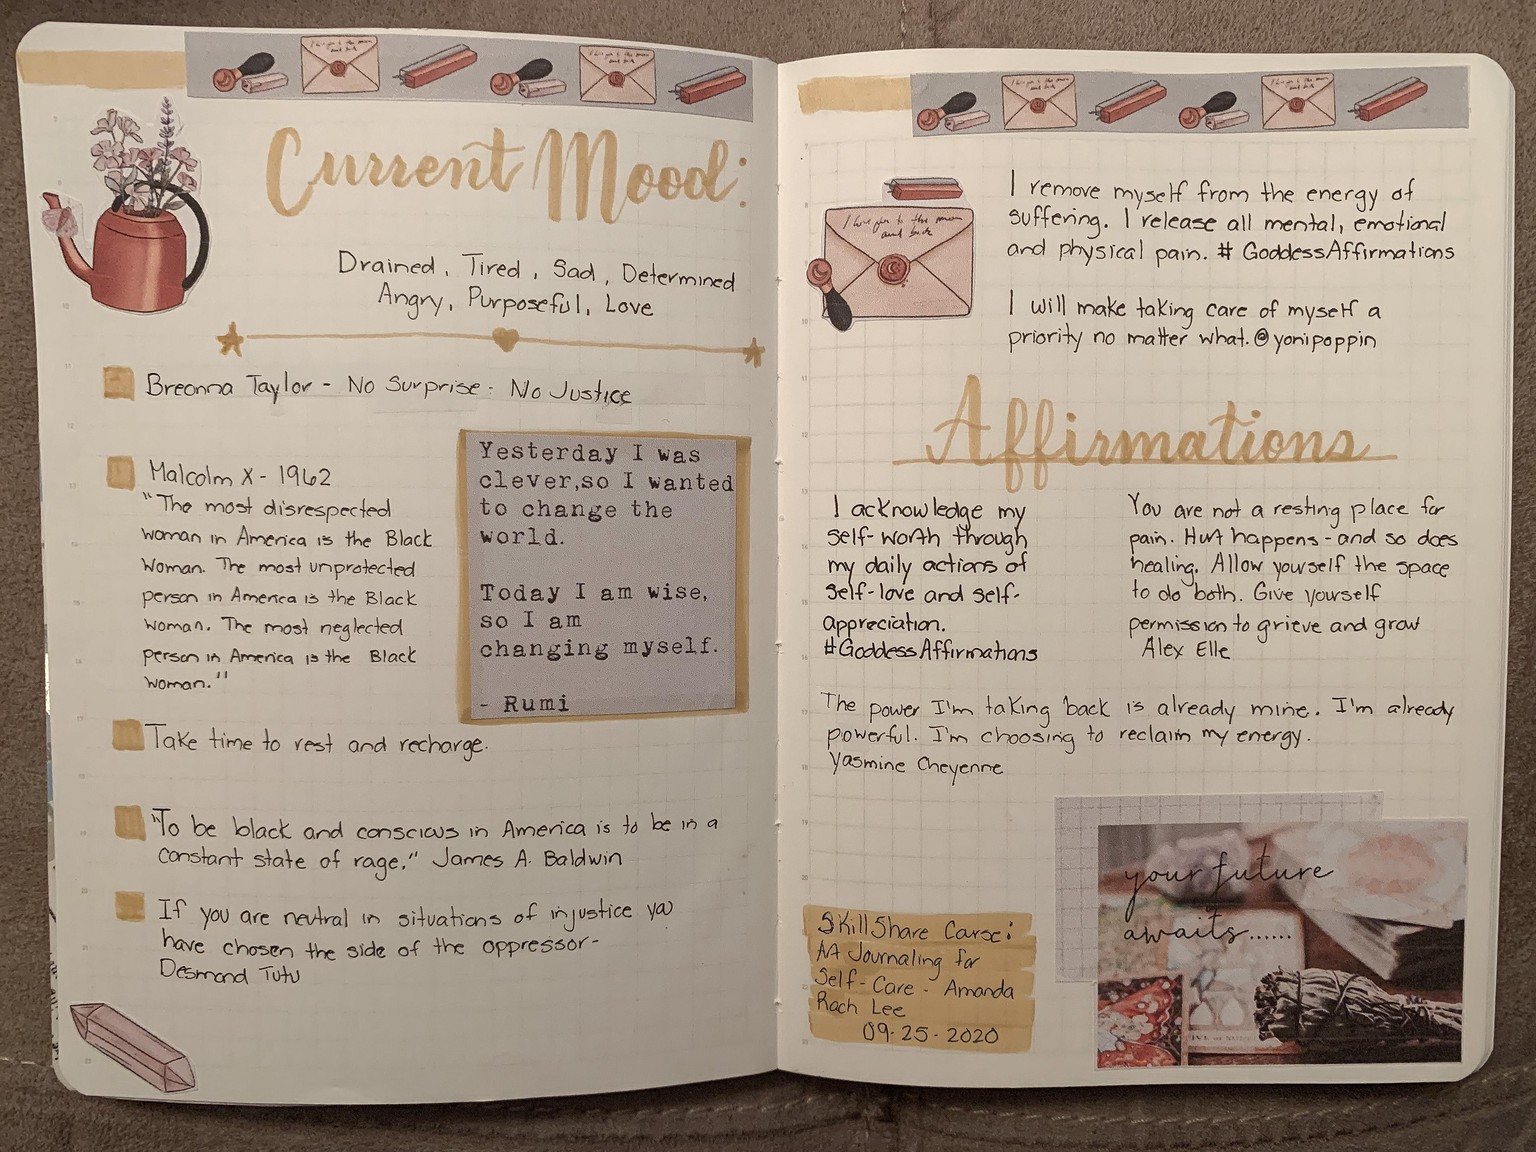 Current Mood:
Drained, Tired, Sad, Determined
Angry, Purposeful, Love
Breonna Taylor - No Surprise: No Justice
Malcolm X - 1962
"The most disrespected
woman in America is the Black
Woman. The most unprotected
person in America is the Black
Woman. The most neglected
person in America is the Black
Woman."
Yesterday I was
clever,so I wanted
to change the
world.
Today I am wise,
so I am
changing myself.
- Rumi
Take time to rest and recharge.
"To be black and conscious in America is to be in a
constant state of rage." James A. Baldwin
If you are neutral in situations of injustice you
have chosen the side of the oppressor-
Desmond Tutu
I love you to the moon
and back
I remove myself from the energy of
suffering. I release all mental, emotional
and physical pain. #GoddessAffirmations
I will make taking care of myself a
priority no matter what. @yonipoppin
Affirmations
I acknowledge my
self-worth through
my daily actions of
self-love and self-
appreciation.
#GoddessAffirmations
You are not a resting place for
pain. Hurt happens - and so does
healing. Allow yourself the space
to do both. Give yourself
permission to grieve and grow
Alex Elle
The power I'm taking back is already mine. I'm already
powerful. I'm choosing to reclaim my energy.
Yasmine Cheyenne
SkillShare Corse:
AA Journaling for
Self-Care - Amanda
Rach Lee
09-25-2020
your future
awaits......